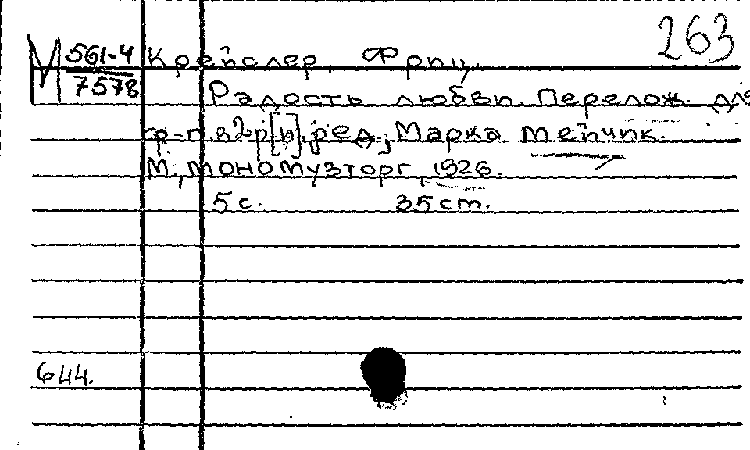 263
М 561-4 Крейслер, Фриц.
7578
Радость любви. Перелож. для
ф-п. в 2 р [и] ред. Марка Мейчик.
М., Mono Музторг, 1926.
5 с. 35 cm.
644.